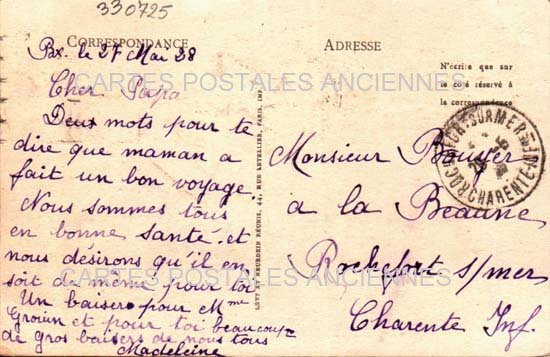 330725
CORRESPONDANCE
ADRESSE
N'écrire que sur
le côté réservé à
la correspondance
CARTES POSTALES ANCIENNES
Bx. le 27 Mai 38
Cher Papa
Deux mots pour te
dire que maman a
fait un bon voyage.
Nous sommes tous
en bonne santé. et
nous désirons qu'il en
soit de même pour toi
Un baiser pour Mme
et pour toi beaucoup
de gros baisers de nous tous
Madeleine
LEVY ET NEURDEIN RÉUNIS, 44, RUE LETELLIER, PARIS, IMP.
Monsieur Bouyer
a la Beaune
Rochefort s/mer
Charente Inf.
ROCHEFORT-SUR-MER
CHARENTE INF
CARTES POSTALES ANCIENNES